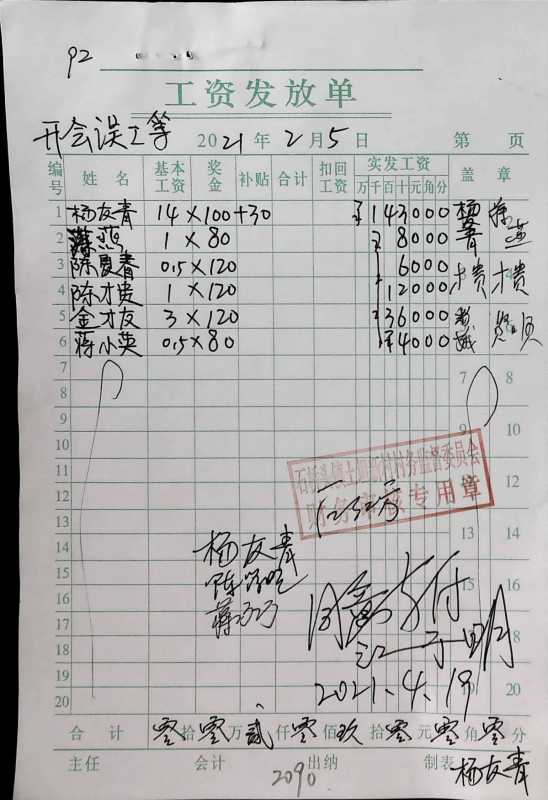 92
工资发放单
开会误工等 2021年2月5日 第 页
编号 姓名 基本工资 奖金 补贴 合计 扣回工资 实发工资 盖章
万 千 百 十 元 角 分
1 杨友青 14×100+30 ¥143000
2 燕 1×80 ¥8000
3 陈夏春 0.5×120 6000
4 陈才贵 1×120 12000 才贵 才贵
5 金才友 3×120 ¥36000
6 蒋小英 0.5×80 ¥4000
7 7 8
8
9 9
10
11
12
13
14
15 15 16
16
17
18 8
19
20 20
村务监督委员会
财务审核专用章
杨友青
同意支付
2021.4.19
合计 零拾零万贰仟零佰玖拾零元零角零分
主任 会计 出纳 制表 杨友青
2090